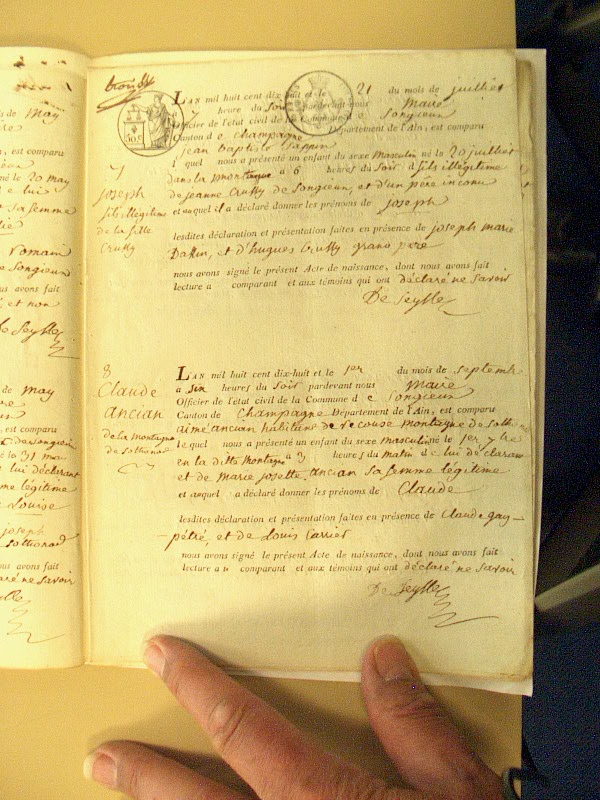 de may
re
est comparu
né le 20 may
e lui
sa femme
romain
e Songieu
us avons fait
et non
de Seyssel
de may
re
est comparu
né le 31 ma
lui déclarant
me légitime
Louise
joseph
sothonod
us avons fait
aré ne savoir
L'AN mil huit cent dix-huit et le 21 du mois de juilliet
heure du Soir pardevant nous Maire
Officier de l'état civil de la Commune d e Songieux
Canton d e champagne Département de l'Ain, est comparu
jean baptiste
lequel nous a présenté un enfant du sexe masculin né le 20 juilliet
dans la montagne a 6 heures du Soir d fils illégitime
de jeanne Crussy de Songieux et d'un père inconu
et auquel il a déclaré donner les prénoms de joseph
lesdites déclaration et présentation faites en présence de joseph marie
et d'hugues Crussy grand père
nous avons signé le présent Acte de naissance, dont nous avons fait
lecture a comparant et aux témoins qui ont déclaré ne savoir
De Seyssel
7
joseph
fils illégitime
de la fille
Crussy
8
Claude
ancian
de la montagne
de sothonod
L'AN mil huit cent dix-huit et le 1er du mois de septembre
a six heures du Soir pardevant nous Maire
Officier de l'état civil de la Commune d e Songieux
Canton de Champagne Département de l'Ain, est comparu
aimé ancian habitant de montagne de
lequel nous a présenté un enfant du sexe masculin né le 1er
en la ditte montagne a 3 heures du matin de lui déclarant
et de marie josette ancian sa femme légitime
et auquel a déclaré donner les prénoms de Claude
lesdites déclaration et présentation faites en présence de Claude gay
pétré, et de Louis Carrier
nous avons signé le présent Acte de naissance, dont nous avons fait
lecture a u comparant et aux témoins qui ont déclaré ne savoir
De Seyssel